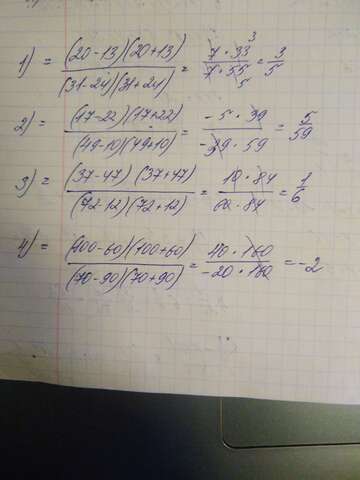 1) = (20-13)(20+13) / (31-24)(31+24) = 7 · 33 3 / 7 · 55 5 = 3/5
2) = (17-22)(17+22) / (49-10)(49+10) = -5 · 39 / -39 · 59 = 5/59
3) = (37-47) (37+47) / (72-12)(72+12) = 10 · 84 / 60 · 84 = 1/6
4) = (100-60)(100+60) / (70-90)(70+90) = 40 · 160 / -20 · 160 = -2